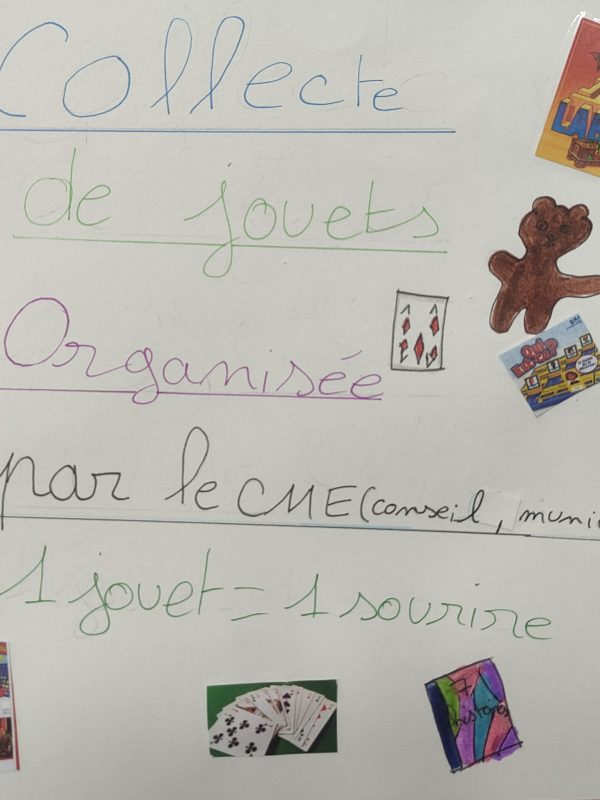 Collecte
de jouets
Organisée
par le CME (conseil, munic
1 jouet = 1 sourire
7
histoires